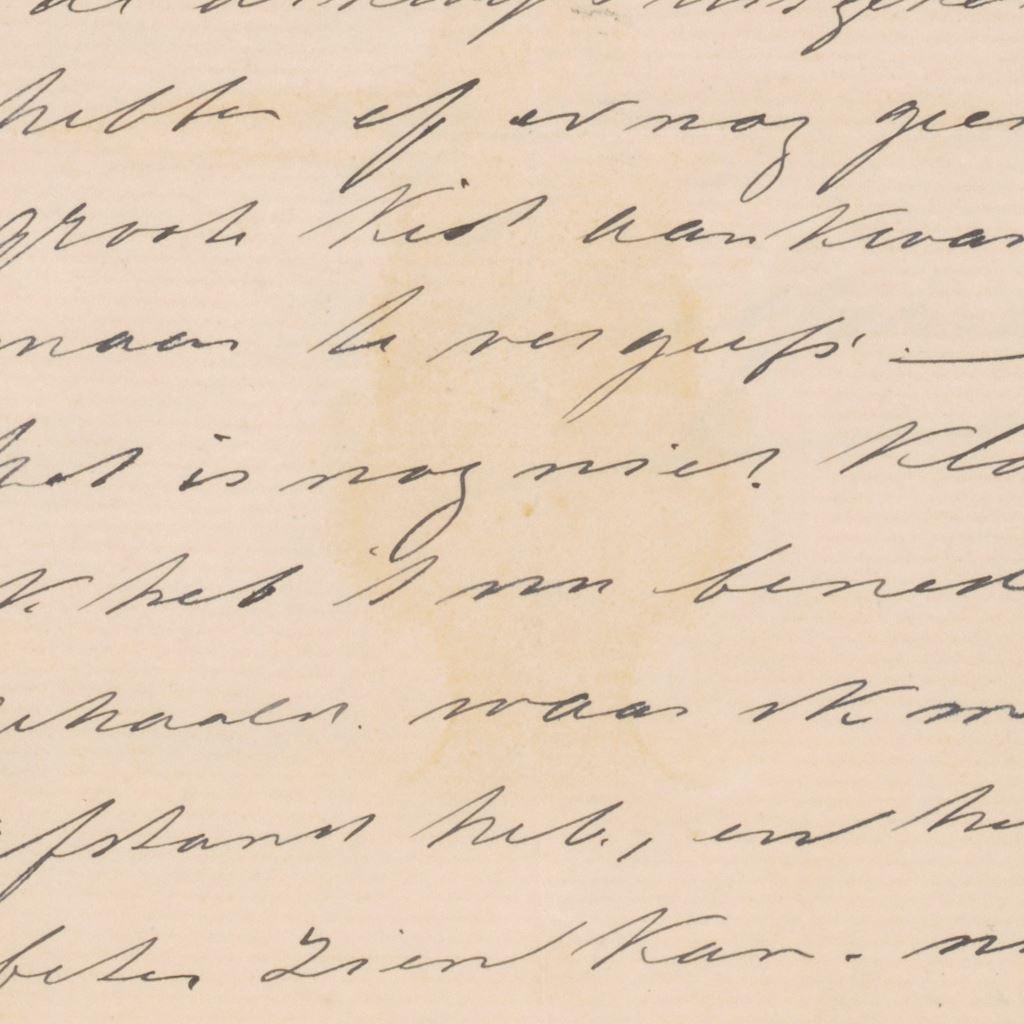 hebben of er nog geen
groote Kist aankwam
maar te vergeefs. —
het is nog niet. Kla
ik heb 't nu bened
gehaald. waar ik m
afstand heb, en he
beter zien kan. n